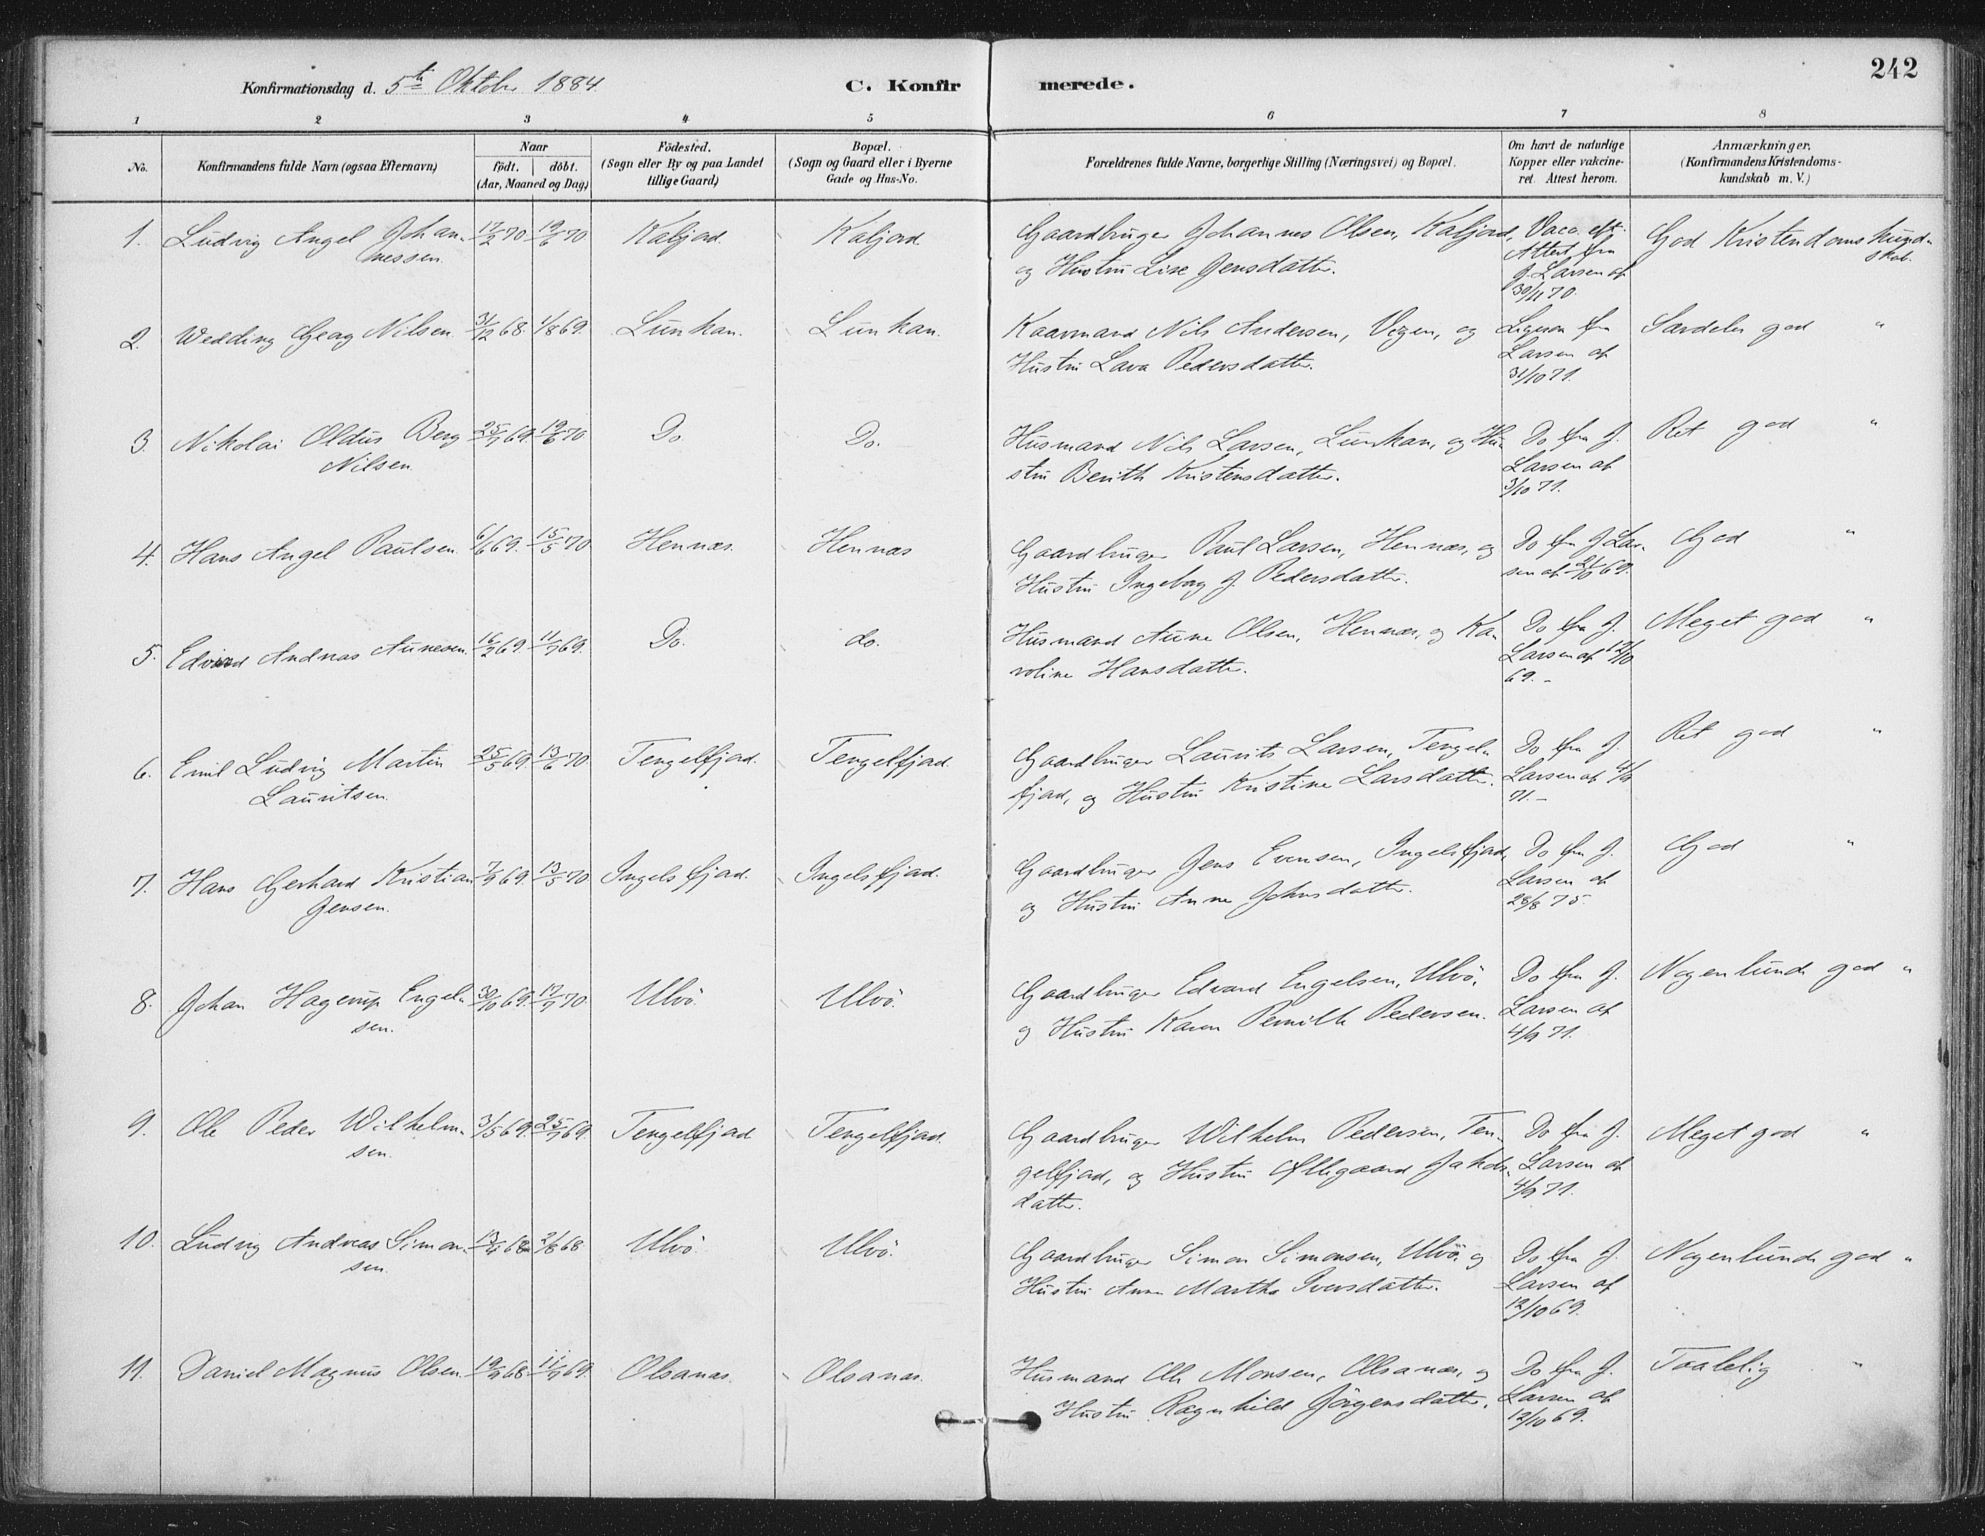 242
Konfirmationsdag d. 5te Oktobr 1884.
C. Konfirmerede.
1 2 3 4 5 6 7 8
No.
Konfirmandens fulde Navn (ogsaa Efternavn)
Naar
födt. döbt.
(Aar, Maaned og Dag)
Födested.
(Sogn eller By og paa Landet
tillige Gaard)
Bopæl.
(Sogn og Gaard eller i Byerne
Gade og Hus-No.
Forældrenes fulde Navne, borgerlige Stilling (Næringsvei) og Bopæl.
Om havt de naturlige
Kopper eller vakcine-
ret. Attest herom.
Anmærkninger,
(Konfirmandens Kristendoms-
kundskab m. V.)
1. Ludvig Angel Johan- 17/2 70 19/6 70 Kaljord Kaljord
nessen.
Gaardbruger Johannes Olsen, Kaljord,
og Hustru Lise Jensdatter.
Vacc. eft.
Attest fra
J. Larsen af
30/11 70.
God Kristendomskund-
skab.
2. Wedding Georg Nilsen. 31/12 68. 1/8 69. Lunkan. Lunkan.
Kaarmand Nils Andersen, Vegen, og
Hustru Lava Pedersdatter.
Ligesom fra
Larsen af
31/10 71.
Særdeles god "
3. Nikolai Oldus Berg 69. 19/6 70 Do Do.
Nilsen.
Husmand Nils Larsen, Lunkan, og Hu-
stru Berith Kristensdatter.
Do fra J.
Larsen af
3/10 71.
Ret god "
4. Hans Angel Paulsen. 6/6 69. 15/5 70 Hennæs. Hennæs
Gaardbruger Paul Larsen, Hennæs, og
Hustru Ingeborg J. Pedersdatter.
Do fra J Lar-
sen af 21/10 69.
God "
5. Edvard Andreas Aunesen. 16/2 69. 69. Do. do.
Husmand Aune Olsen, Hennæs, og Ka-
roline Hansdatter.
Do fra J.
Larsen af 12/10
69. -
Meget god "
6. Emil Ludvig Martin 25/5 69. 13/6 70 Tengelfjord. Tengelfjord.
Lauritsen.
Gaardbruger Laurits Larsen, Tengel-
fjord, og Hustru Kristine Larsdatter.
Do fra J.
Larsen af 4/9
71. -
Ret god "
7. Hans Gerhard Kristian 7/9 69. 13/5 70 Ingelsfjord. Ingelsfjord.
Jensen.
Gaardbruger Jens Evensen, Ingelsfjord,
og Hustru Anne Johnsdatter.
Do fra J.
Larsen af
28/8 75.
God "
8. Johan Hagerup Engel- 30/10 69. 17/7 70. Ulvö. Ulvö.
sen.
Gaardbruger Edvard Engelsen, Ulvö,
og Hustru Karen Pernille Pedersen.
Do fra J.
Larsen af
4/9 71.
Nogenlunde god "
9. Ole Peder Wilhelm- 3/5 69. 25/7 69. Tengelfjord Tengelfjord.
sen.
Gaardbruger Wilhelm Pedersen, Ten-
gelfjord, og Hustru Ellegaard Jakobs-
datter.
Do fra J.
Larsen af
4/9 71.
Meget god "
10. Ludvig Andreas Simon- 68. 2/8 68 Ulvö. Ulvö.
sen.
Gaardbruger Simon Simonsen, Ulvö, og
Hustru Anne Martha Iversdatter.
Do fra J.
Larsen af
12/10 69.
Nogenlunde god "
11. Daniel Magnus Olsen. 19/9 68. 69. Olsanæs. Olsanæs.
Husmand Ole Monsen, Olsanæs, og
Hustru Ragnhild Jörgensdatter.
Do fra J.
Larsen af
12/10 69.
Taalelig "